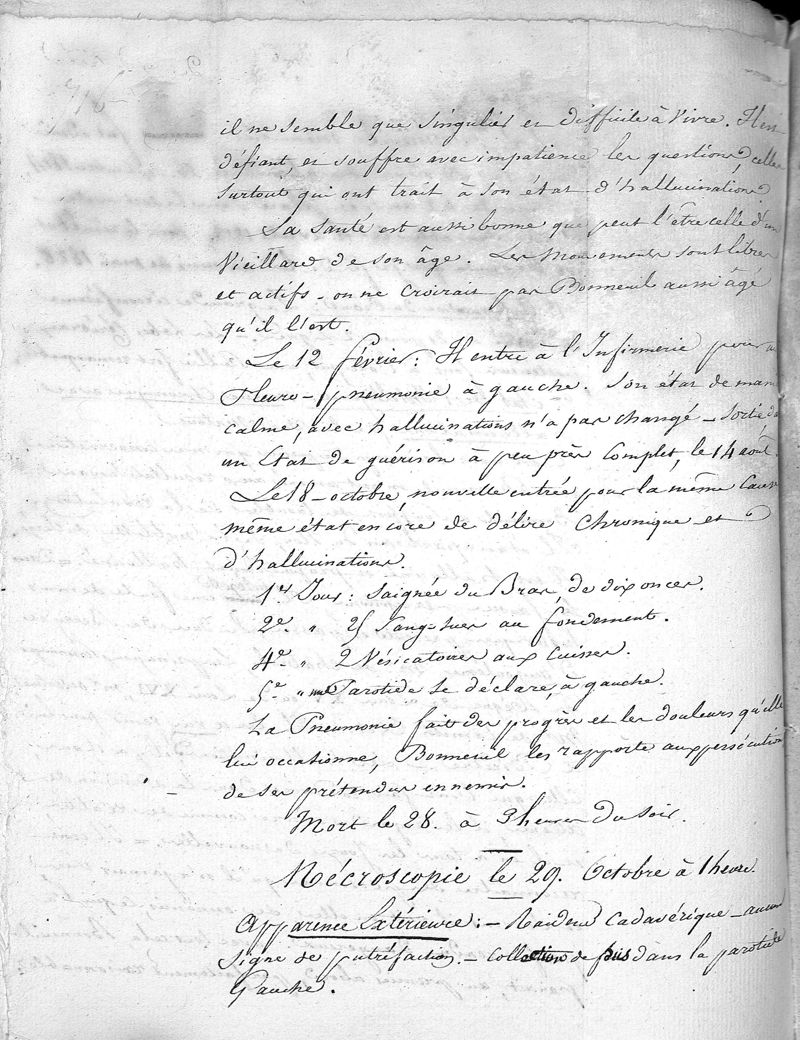 il ne semble que singulier et difficile à vivre. Il est
défiant, et souffre avec impatience les questions, celles
surtout qui ont trait à son état d'hallucinations.
Sa santé est aussi bonne que peut l'être celle d'un
vieillard de son âge. Les mouvements sont libres
et actifs - on ne croirait pas Bonneuil aussi âgé
qu'il l'est.
Le 12 février: Il entre à l'Infirmerie pour
Pleuro-pneumonie à gauche. Son état de manie
calme, avec hallucinations n'a pas changé - sortie
un Etat de guérison à peu près complet, le 14 août.
Le 18-octobre, nouvelle entrée pour la même cause
même état encore de délire chronique et
d'hallucinations.
1er Jour: Saignée du Bras, de dix onces.
2e. " 25 Sang-sues au fondement.
4e. " 2 Vésicatoires aux Cuisses.
5e " une Parotide se déclare, à gauche.
La Pneumonie fait des progrès et les douleurs qu'elle
lui occasionne, Bonneuil les rapporte aux persécutions
de ses prétendus ennemis.
Mort le 28. à 3 heures du soir.
Nécroscopie le 29. Octobre à 1 heure.
Apparence Extérieure: - Raideur Cadavérique - aucun
signe de putréfaction. - Collection de pus dans la parotide
Gauche.